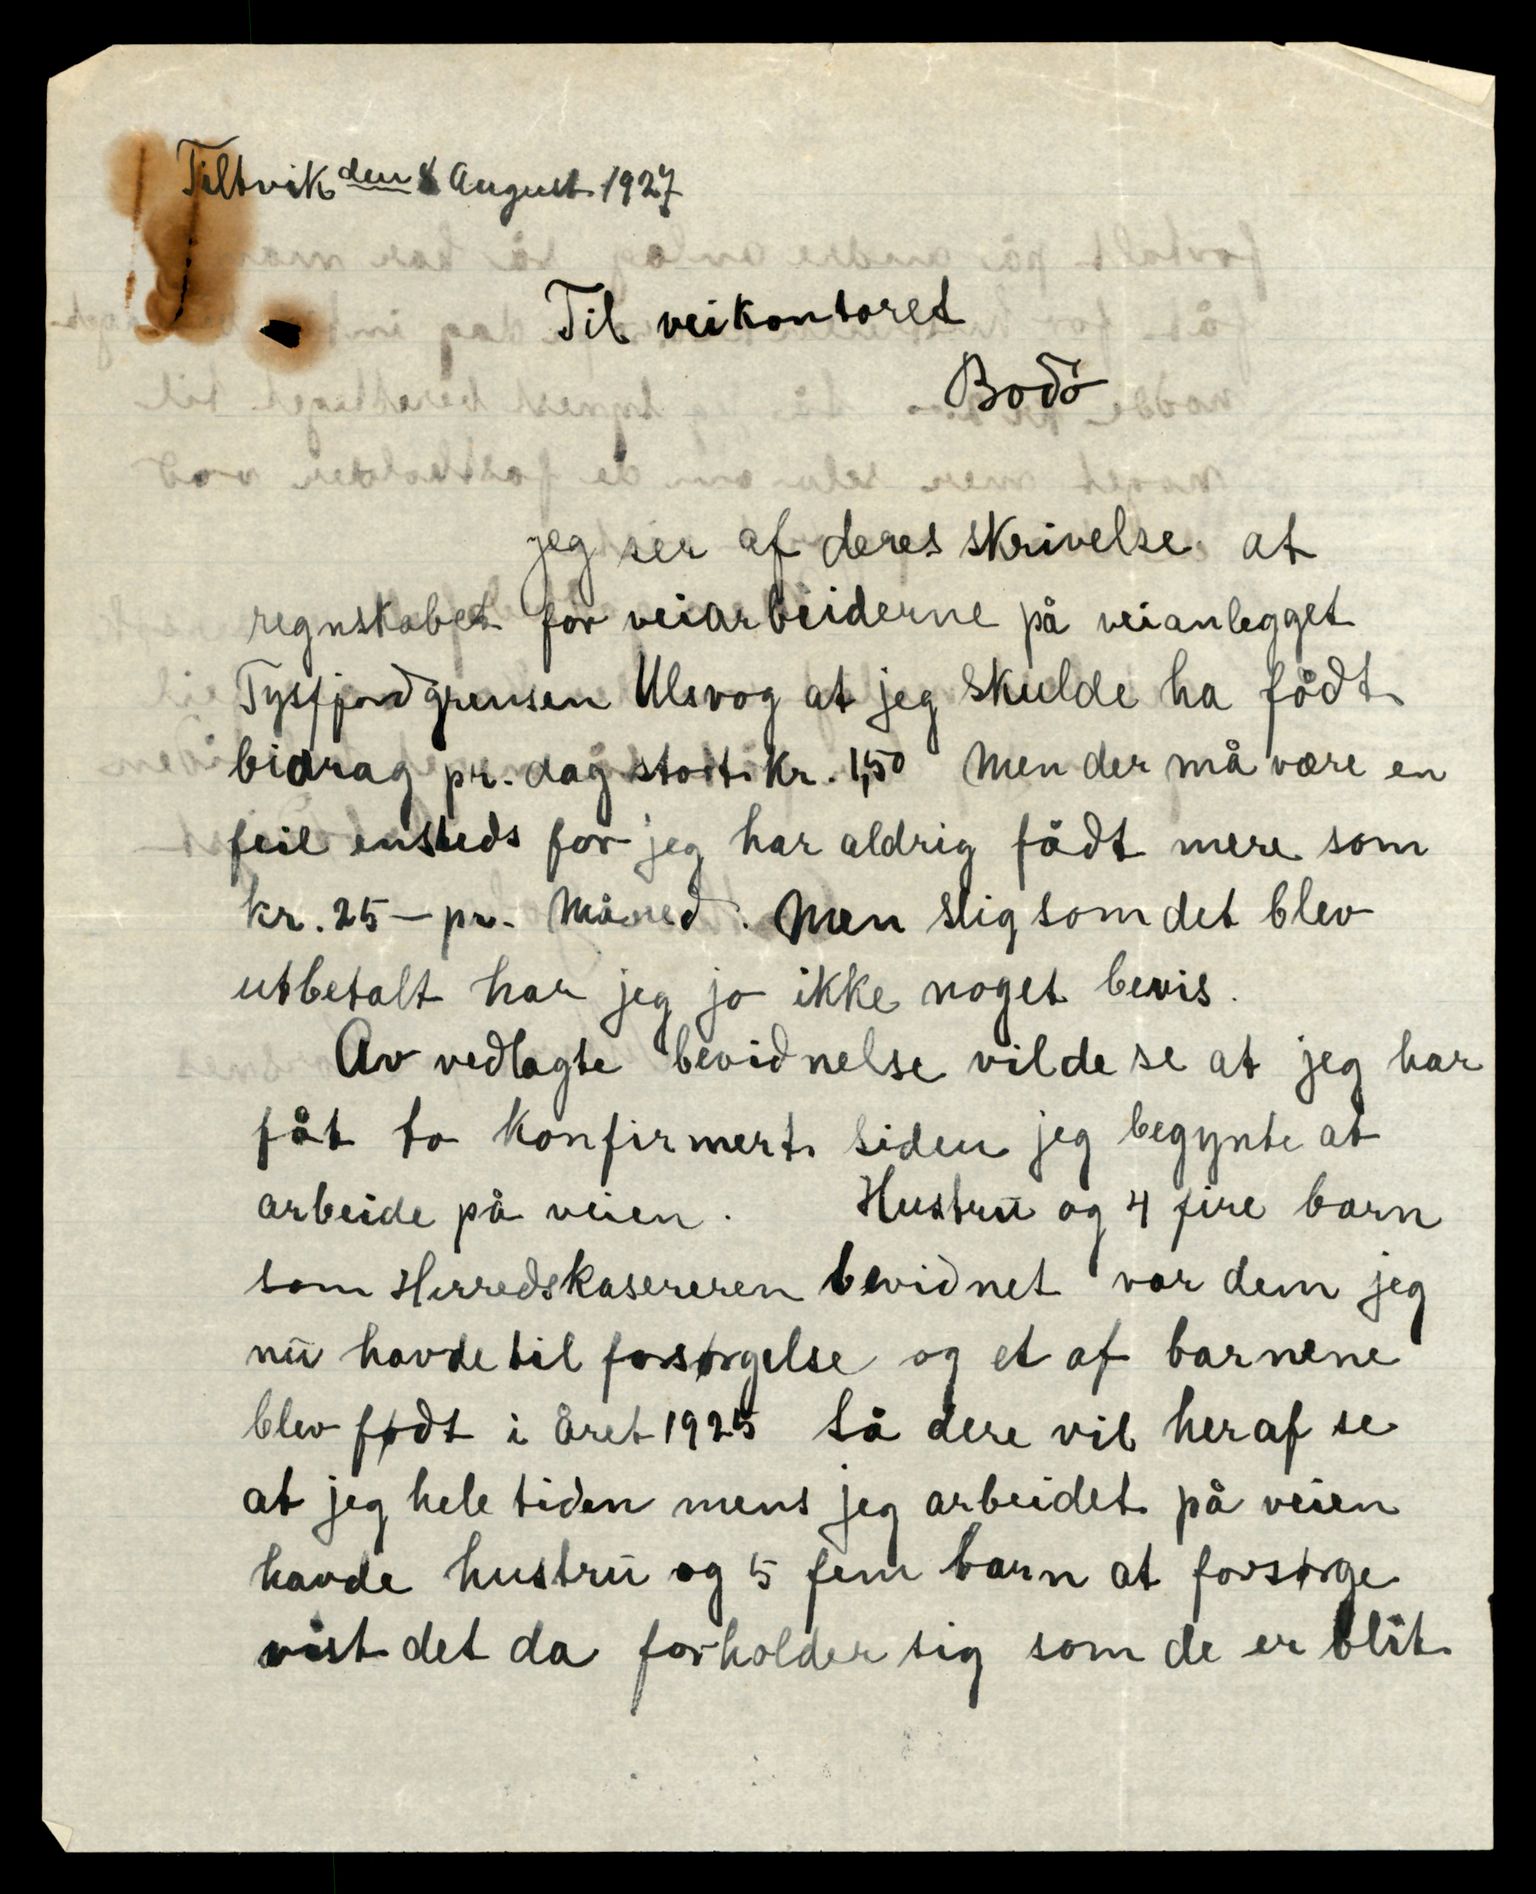 Tiltvik den 8 August 1927
Til veikontoret
Bodö
jeg ser af deres skrivelse at
regnskabet for veiarbeiderne på veianlegget
Tysfjordgrensen Ulsvog at jeg skulde ha fådt
bidrag pr. dag stort kr. 1,50 Men der må være en
feil ensteds for jeg har aldrig fådt mere som
kr. 25 – pr. Måned. Men slig som det blev
utbetalt har jeg jo ikke noget bevis.
Av vedlagte bevidnelse vil de se at jeg har
fåt to konfirmert siden jeg begynte at
arbeide på veien. Hustru og 4 fire barn
som Herredskasereren bevidnet var dem jeg
nu havde til forsørgelse og et af barnene
blev født i året 1925 Så dere vil heraf se
at jeg hele tiden mens jeg arbeidet på veien
havde hustru og 5 fem barn at forsørge
vist det da forholder sig som de er blit